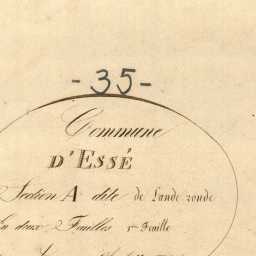 - 35 -
Commune
D'ESSÉ
Section A dite de Lande ronde
En deux Feuilles 1re Feuille